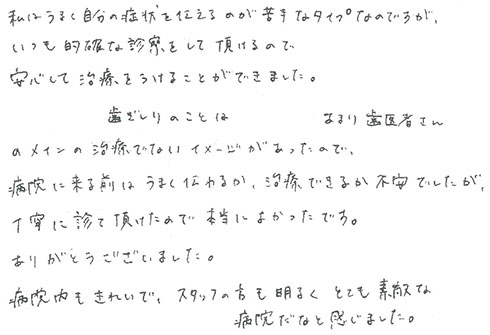 私はうまく自分の症状を伝えるのが苦手なタイプなのですが、
いつも的確な診察をして頂けるので
安心して治療をうけることができました。
歯ぎしりのことは　あまり歯医者さん
のメインの治療でないイメージがあったので、
病院に来る前はうまく伝わるか、治療できるか不安でしたが、
丁寧に診て頂けたので本当によかったです。
ありがとうございました。
病院内もきれいで、スタッフの方も明るくとても素敵な
病院だなと感じました。